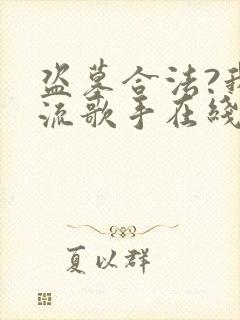 盗墓合法?我
流歌手在綫
夏以群